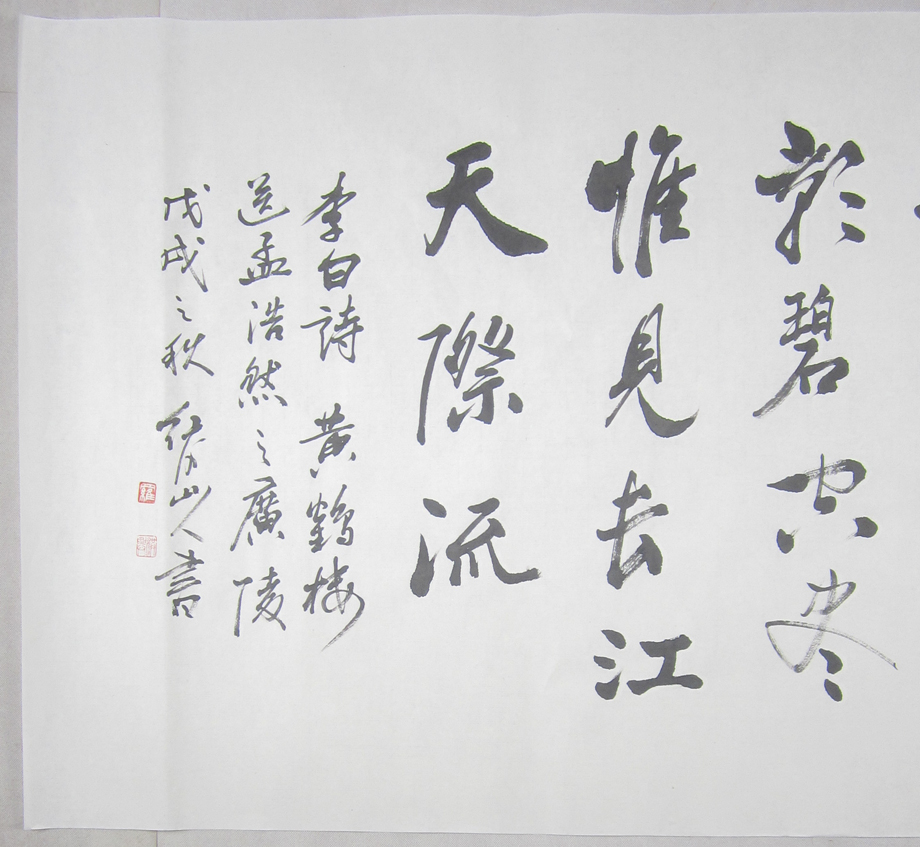 影碧空尽
惟見去江
天際流
李白詩 黄鶴楼
送孟浩然之廣陵
戊戌之秋 山人書